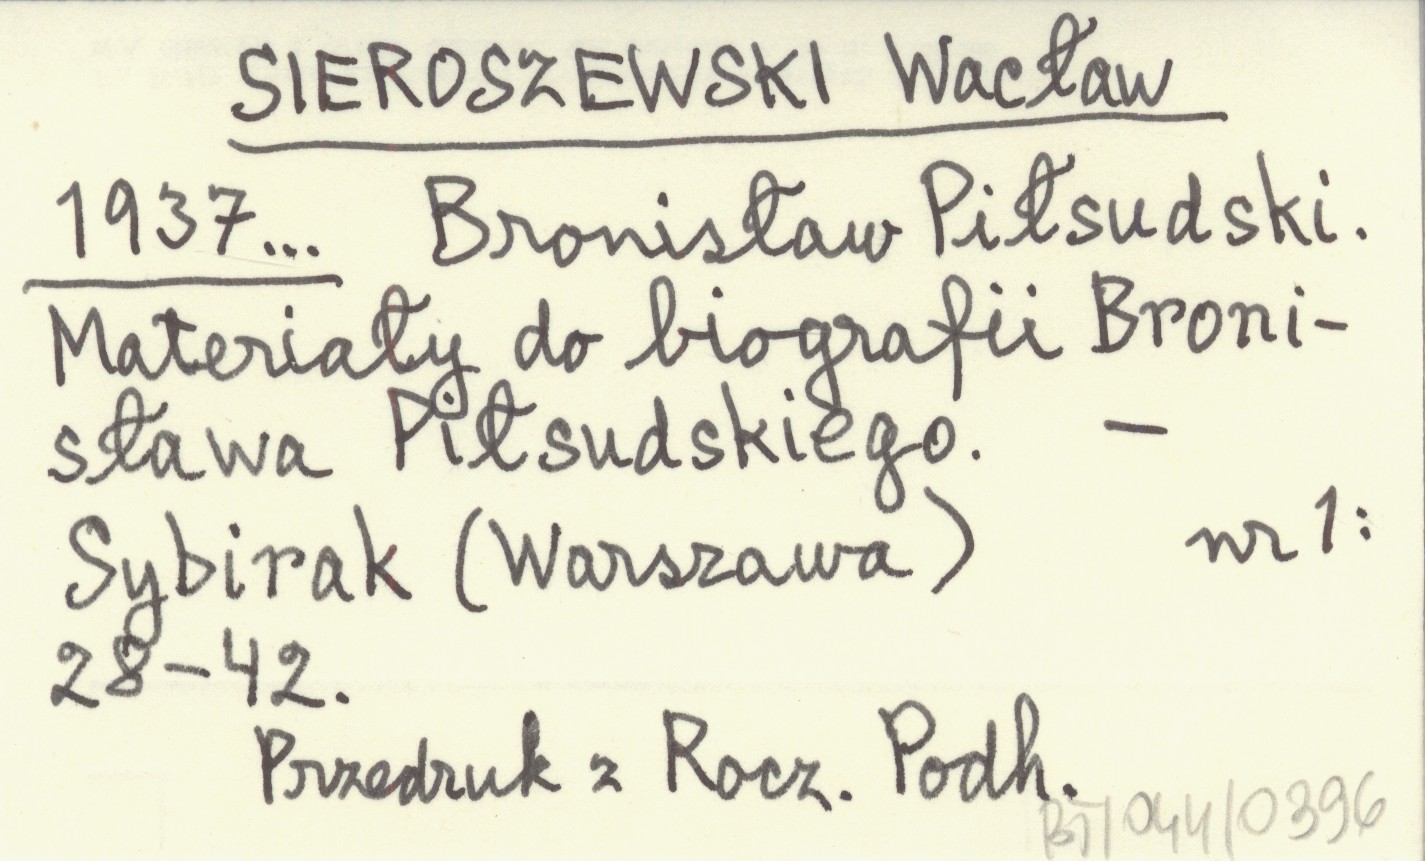 SIEROSZEWSKI Wacław
1937... Bronisław Piłsudski.
Materiały do biografii Broni-
sława Piłsudskiego. –
Sybirak (Warszawa) nr 1:
28–42.
Przedruk z Rocz. Podh.
BJ/044/0396